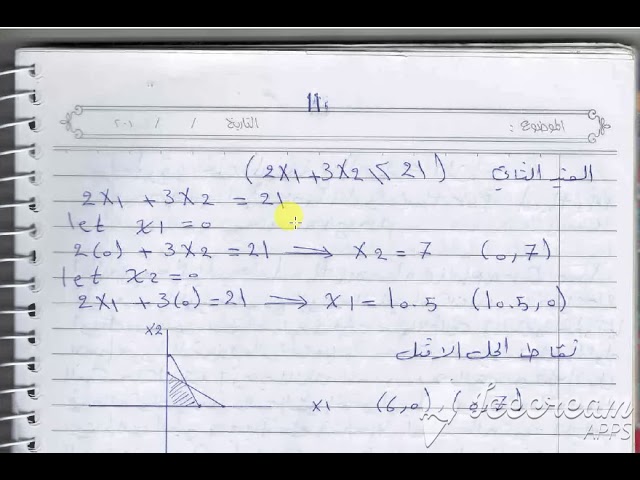 11
الموضوع : التاريخ / / ٢٠٢
القيد الثاني (2X1+3X2 \< 21)
2X1 + 3X2 = 21
let x1 = 0
2(0) + 3X2 = 21 → X2 = 7 (0,7)
let X2 = 0
2X1 + 3(0) = 21 → X1 = 10.5 (10.5,0)
نقاط الحل
X2
X1 (6,0) (0,7)
APPS